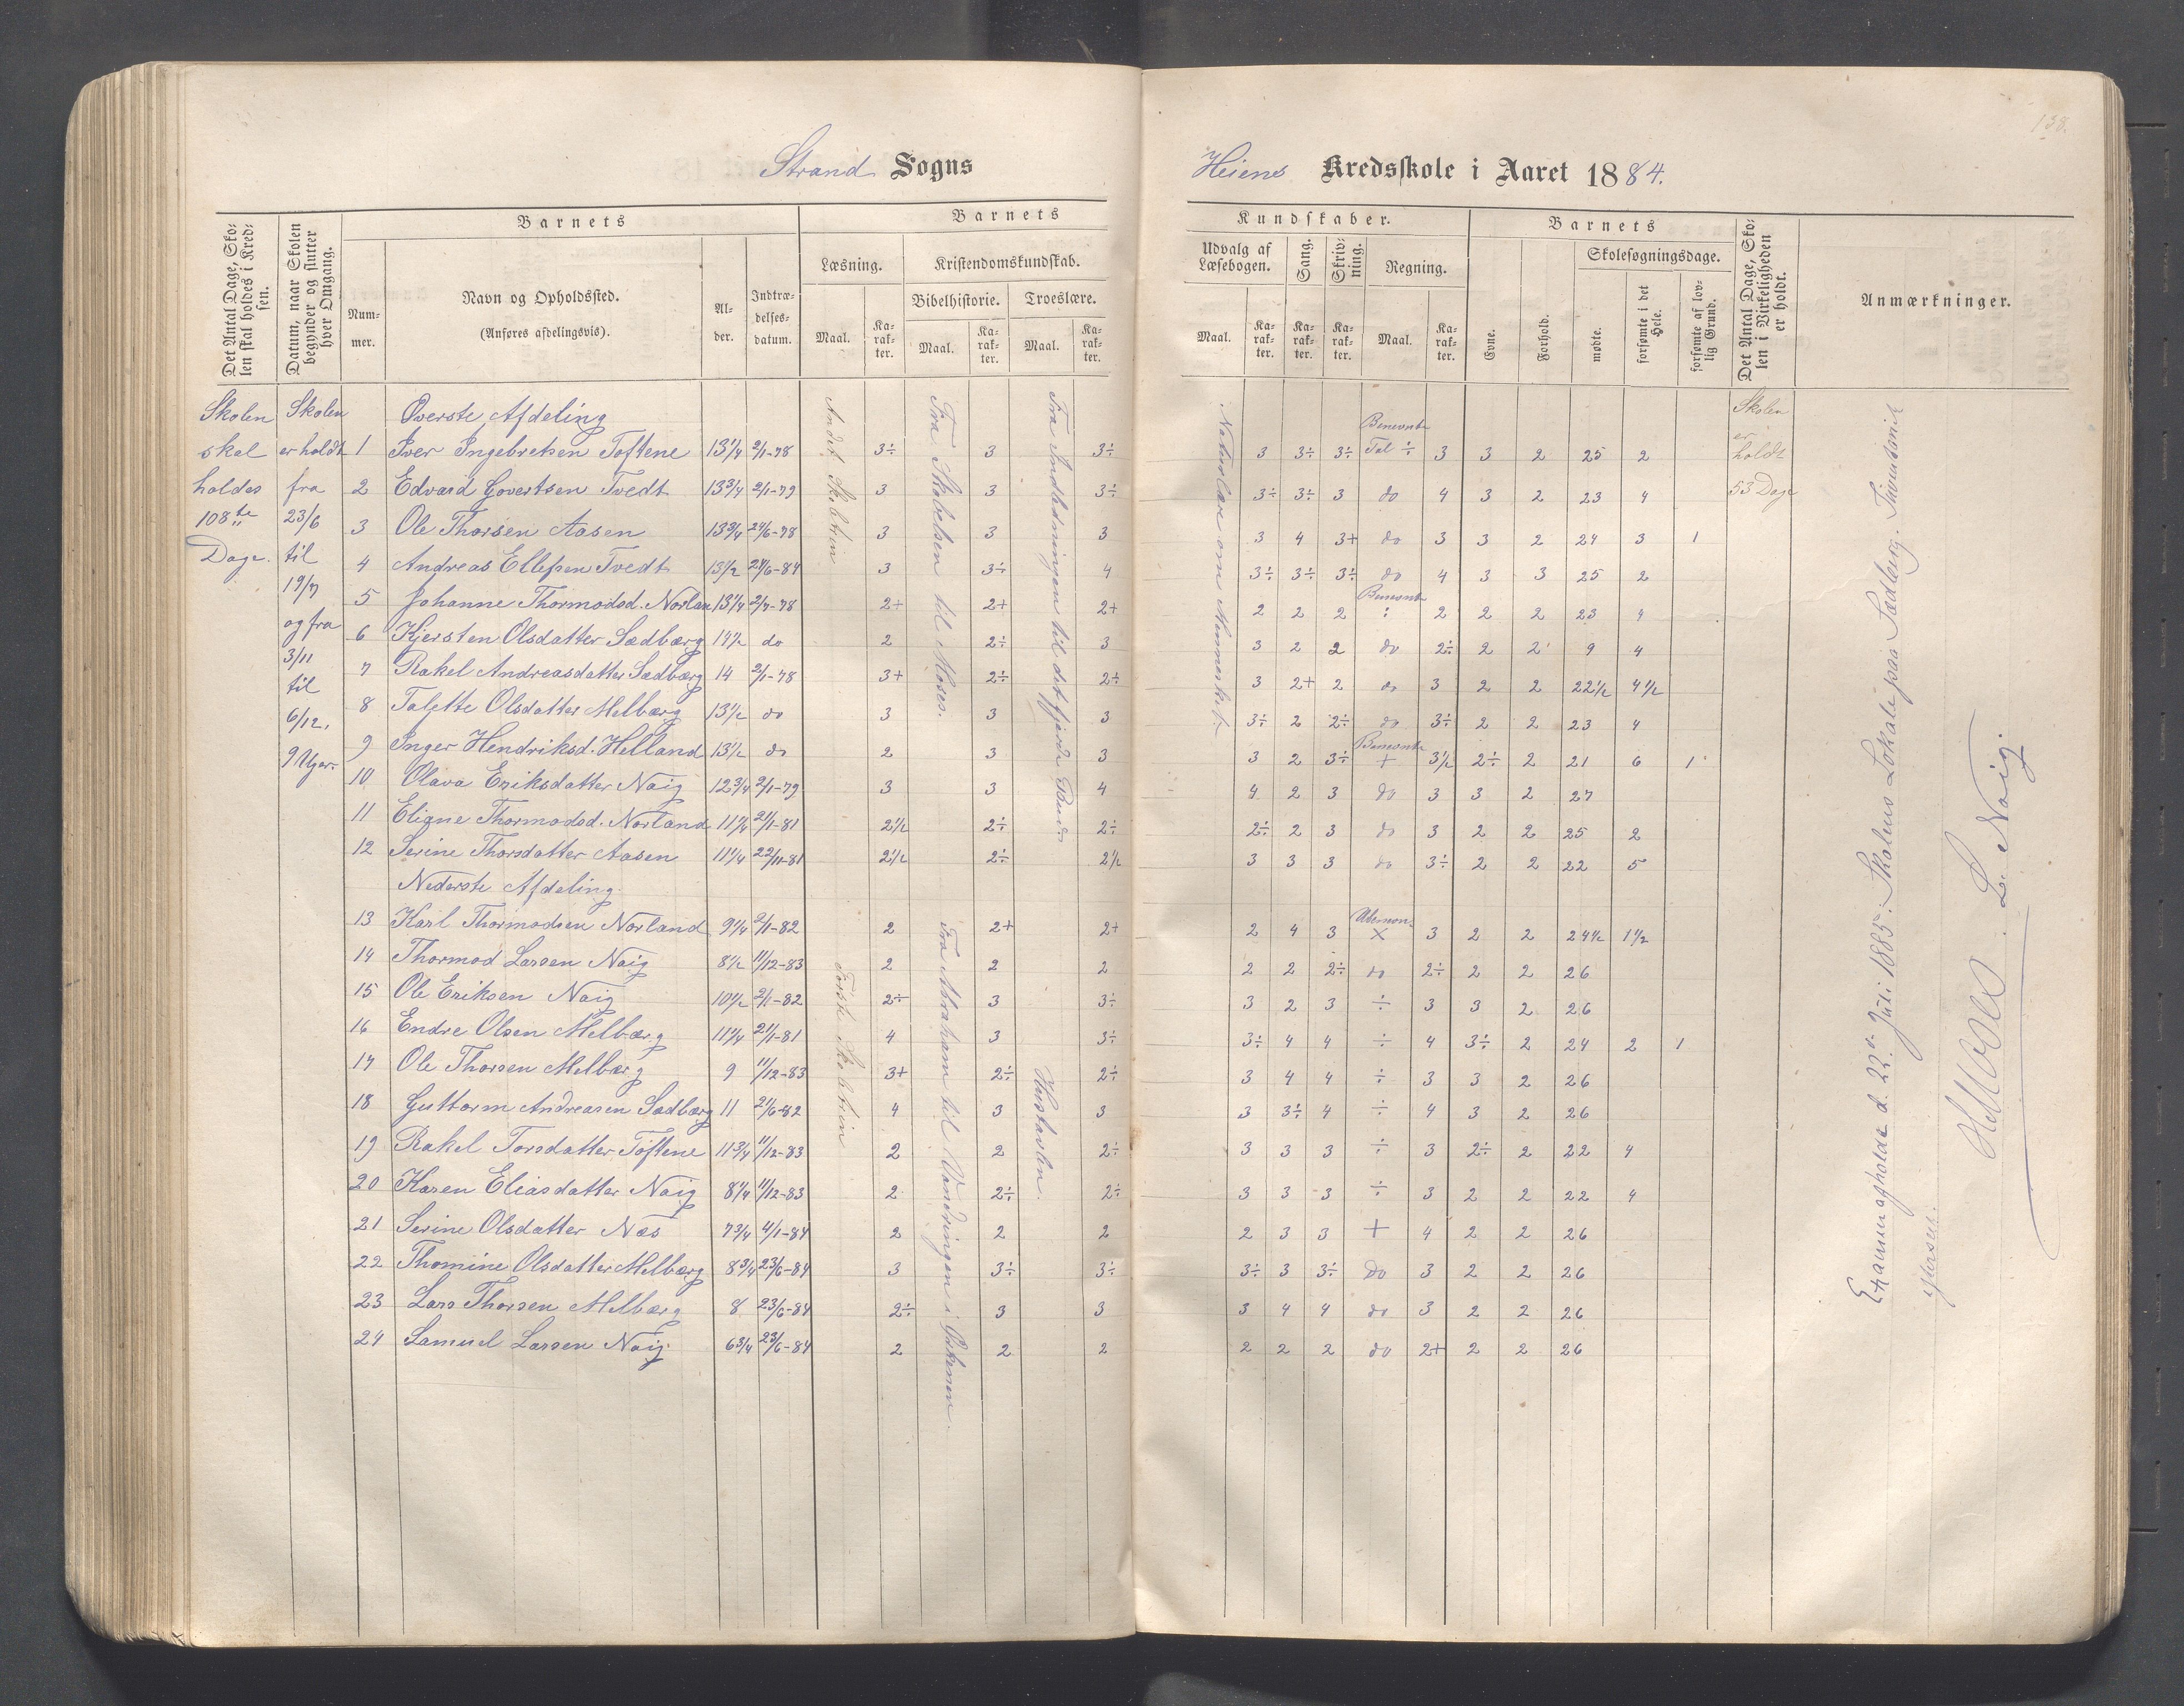 138.
Strand Sogns
Heiens Kredsskole i Aaret 1884.
Det Antal Dage, Sko-
len skal holdes i Kred-
sen.
Datum, naar Skolen
begynder og slutter
hver Omgang.
Barnets
Num-
mer.
Navn og Opholdssted.
(Anføres afdelingsvis).
Al-
der.
Indtræ-
delses-
datum.
Barnets
Læsning.
Maal.
Ka-
rak-
ter.
Kristendomskundskab.
Bibelhistorie.
Maal.
Ka-
rak-
ter.
Troeslære.
Maal.
Ka-
rak-
ter.
Kundskaber.
Udvalg af
Læsebogen.
Maal.
Ka-
rak-
ter.
Sang.
Ka-
rak-
ter.
Skriv-
ning.
Ka-
rak-
ter.
Regning.
Maal.
Ka-
rak-
ter.
Barnets
Evne.
Forhold.
Skolesøgningsdage.
mødte.
forsømte i det
Hele.
forsømte af lov-
lig Grund.
Det Antal Dage, Sko-
len i Virkeligheden
er holdt.
Anmærkninger.
Skolen
skal
holdes
108te
Dage.
Skolen
er holdt
fra
23/6
til
19/7
og fra
3/11
til
6/12.
9 Uger.
Øverste Afdeling
1 Iver Ingebretsen Toftene 13 1/4 2/1-78 3÷ 3 3÷ 3 3÷ 3÷ Benevnte Tal ÷ 3 3 2 25 2
2 Edvard Govertsen Tvedt 13 3/4 2/1-79 3 3 3÷ 3÷ 3÷ 3 do 4 3 2 23 4
3 Ole Thorsen Aasen 13 3/4 24/6-78 3 3 3 3 4 3+ do 3 3 2 24 3 1
4 Andreas Ellefsen Tvedt 13 1/2 24/6-84 3 3÷ 4 3÷ 3÷ 3÷ do 4 3 3 25 2
5 Johanne Thormodsd. Norland 13 1/4 2/7-78 2+ 2+ 2+ 2 2 2 Benevnte : 2 2 2 23 4
6 Kjersten Olsdatter Sædbærg 14 1/2 do 2 2÷ 3 3 2 2 do 2÷ 2 2 9 4
7 Rakel Andreasdatter Sædbærg 14 2/1-78 3+ 2÷ 2÷ 3 2+ 2 do 3 2 2 22 1/2 4 1/2
8 Taletta Olsdatter Melbærg 13 1/2 do 3 3 3 3÷ 2 2÷ do 3÷ 2 2 23 4
9 Inger Hendriksd. Helland 13 1/2 do 2 3 3 3 2 3÷ Benevnte + 3 1/2 2÷ 2 21 6 1
10 Olava Eriksdatter Naig 12 3/4 2/1-79 3 3 4 4 2 3 do 3 3 2 27
11 Eliane Thormodsd. Norland 11 1/4 21/1-81 2 1/2 2÷ 2÷ 2÷ 2 3 do 3 2 2 25 2
12 Serine Thorsdatter Aasen 11 1/4 22/11-81 2 1/2 2÷ 2 1/2 3 3 3 do 3÷ 2 2 22 5
Nederste Afdeling
13 Karl Thormodsen Norland 9 1/4 2/1-82 2 2+ 2+ 2 4 3 Ubenevn. × 3 2 2 24 1/2 1 1/2
14 Thormod Larsen Naig 8 1/2 11/12-83 2 2 2 2 2 2÷ do 2÷ 2 2 26
15 Ole Eriksen Naig 10 1/2 2/1-82 2÷ 3 3÷ 3 2 3 ÷ 3 3 2 26
16 Endre Olsen Melbærg 11 1/4 21/1-81 4 3 3÷ 3÷ 4 4 ÷ 4 3÷ 2 24 2 1
17 Ole Thorsen Melbærg 9 11/12-83 3+ 2÷ 2÷ 3 4 4 ÷ 3 3 2 26
18 Guttorm Andreasen Sædbærg 11 21/6-82 4 3 3 3 3÷ 4 ÷ 4 3 2 26
19 Rakel Torsdatter Toftene 11 3/4 11/12-83 2 2 2÷ 3 3 3 ÷ 3 2÷ 2 22 4
20 Karen Eliasdatter Naig 8 1/4 11/12-83 2 2÷ 2÷ 3 3 3 ÷ 3 2 2 22 4
21 Serine Olsdatter Næs 7 3/4 4/1-84 2 2 2 2 3 3 + 4 2 2 26
22 Thomine Olsdatter Melbærg 8 3/4 23/6-84 3 3÷ 3÷ 3÷ 3 3÷ do 3 2 2 26
23 Lars Thorsen Melbærg 8 23/6-84 2÷ 3 3 3 4 4 do 3 2 2 26
24 Samuel Larsen Naig 6 3/4 23/6-84 2 2 2 2 2 2 do 2+ 2 2 26
Andet Skoletrin
Første Skoletrin
Fra Skabelsen til Moses.
Fra Abraham til Vandringen i Ørkenen.
Fra Indledningen til det fjerde Bud
Hustavlen.
Naturlære om Mennesket
Skolen
er
holdt
53 Dage
Examen afholdt d. 22de Juli 1885. Skolens Lokale paa Sædberg.
L. Naig.